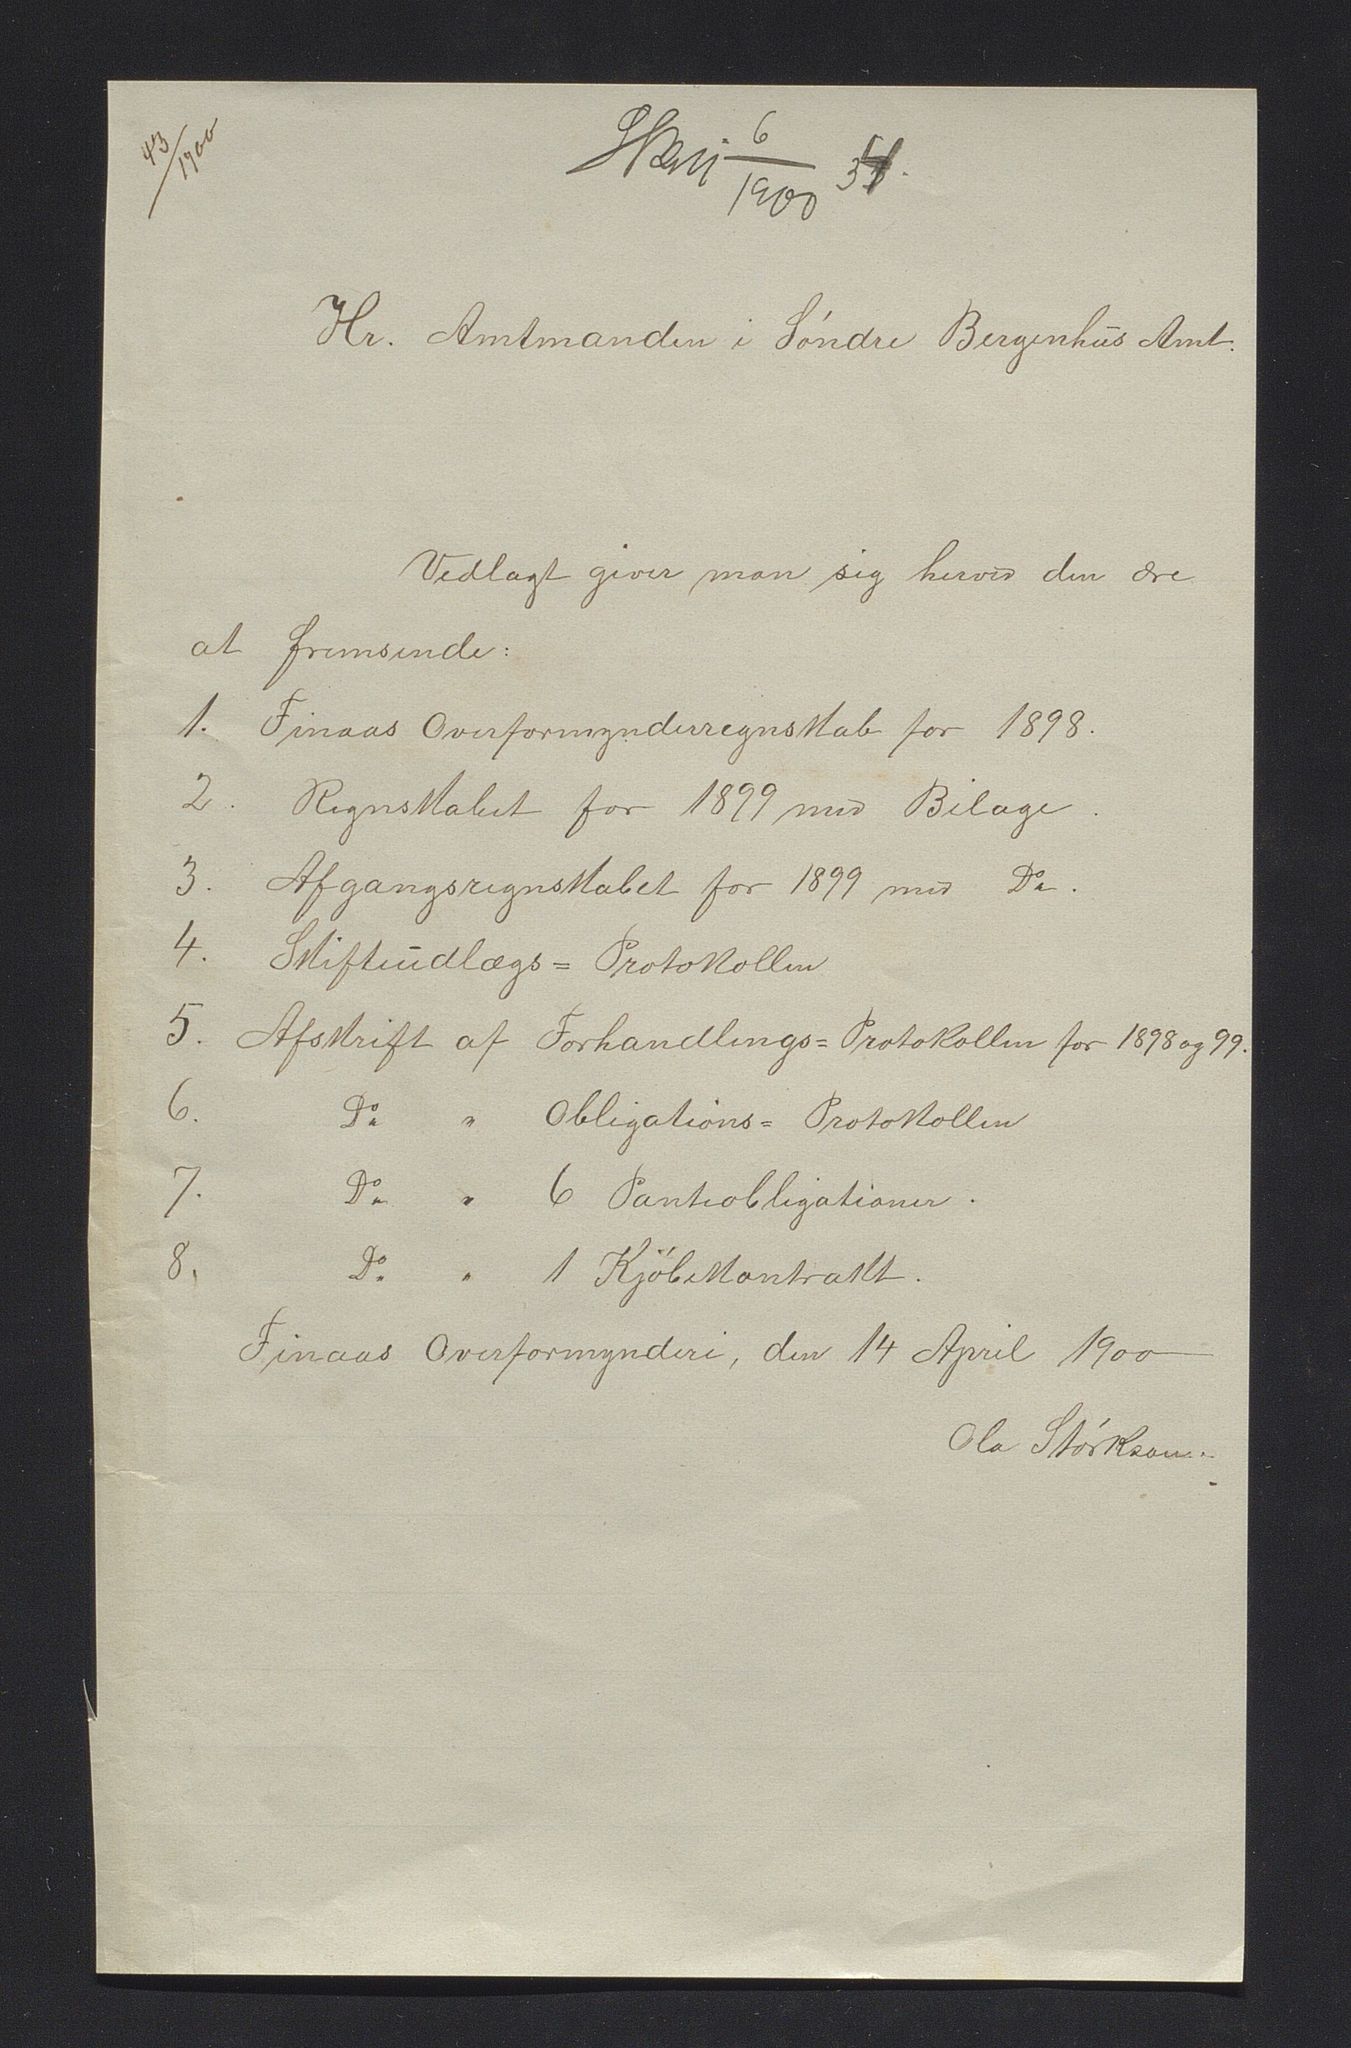 43/1900
6/1900
Hr. Amtmanden i Søndre Bergenhus Amt.
Vedlagt giver man sig herved den ære
at fremsende:
1. Finaas Overformynderregnskab for 1898.
2. Regnskabet for 1899 med Bilage.
3. Afgangsregnskabet for 1899 med Do.
4. Skifteudlægs= Protokollen
5. Afskrift af Forhandlings= Protokollen for 1898 og 99.
6. Do " Obligations= Protokollen
7. Do " 6 Panteobligationer.
8. Do " 1 Kjöbekontrakt.
Finaas Overformynderi, den 14 April 1900
Ola Størkson.